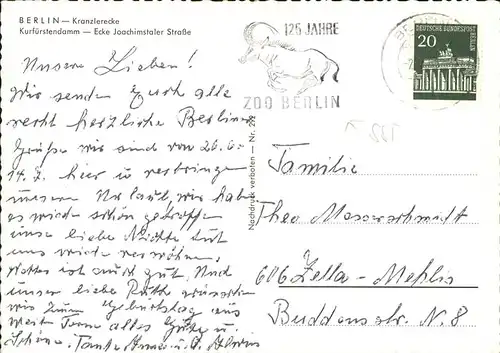 BERLIN — Kranzlerecke
Kurfürstendamm — Ecke Joachimstaler Straße
125 JAHRE
ZOO BERLIN
DEUTSCHE BUNDESPOST
BERLIN
20
Nachdruck verboten — Nr. 212
Unsere Lieben!
Wir senden Euch alle
recht herzliche Berliner
Grüße wir sind von 26.6.
14.7. hier u. verbringen
unseren Urlaub, wir haben
es wieder schön getroffen
unsere liebe Nichte tut
uns wieder verwöhnen,
Wetter ist auch gut. Und
unser liebe Ruth wünschen
wir zum Geburtstag aus
weiter Ferne alles Gute u.
Schöne. Tante Anna u. O.
Familie
Theo Messerschmidt
606 Zella-Mehlis
Str. N. 8